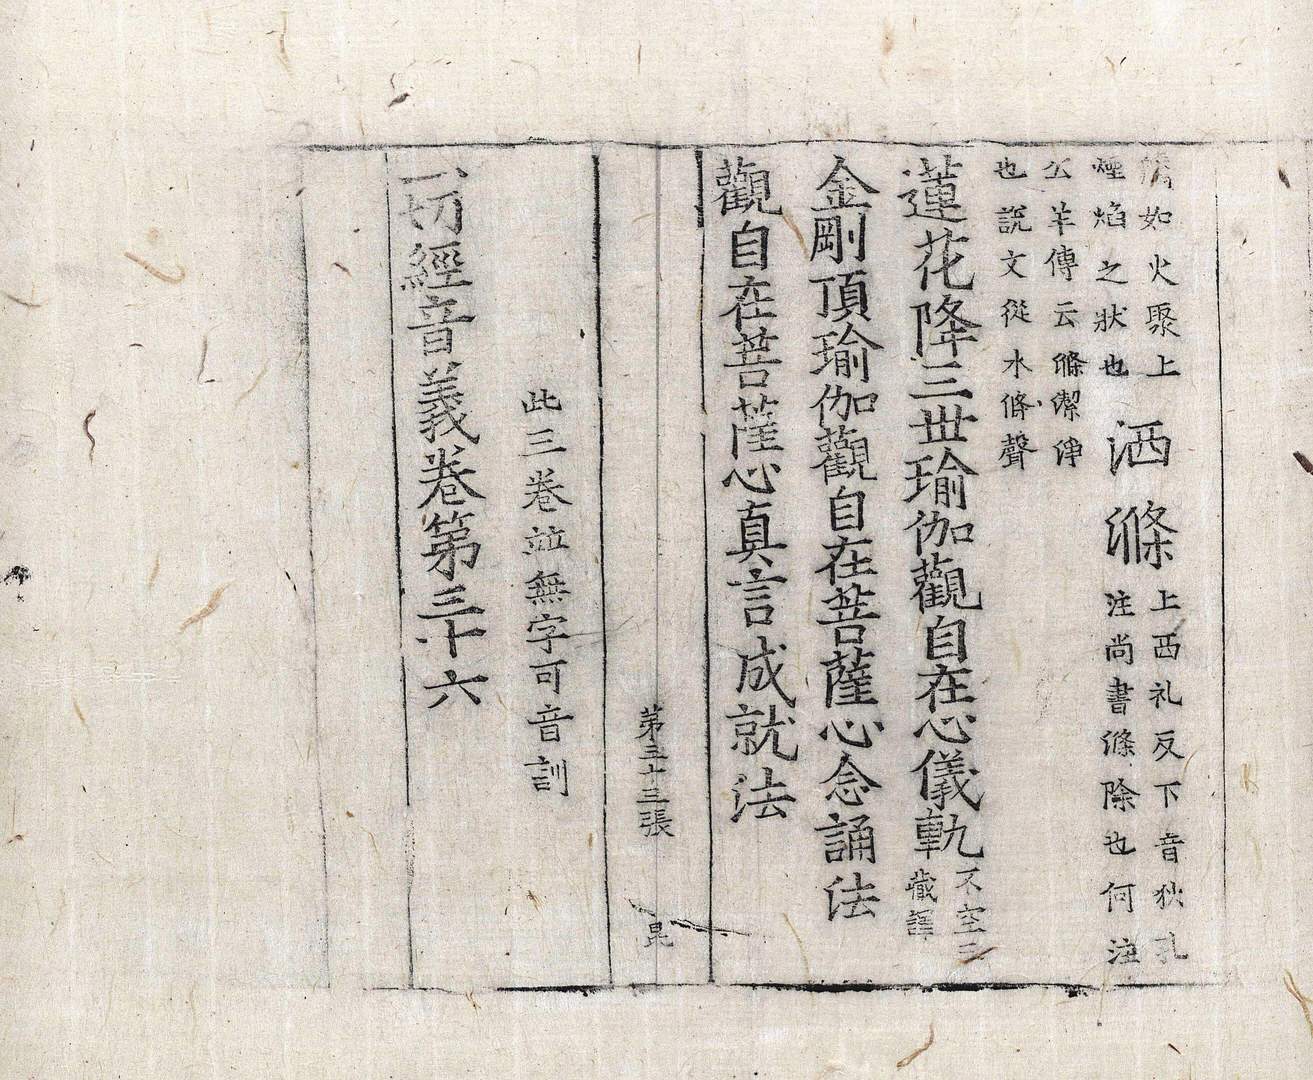 如火聚上
煙焰之狀也
洒滌
上西礼反下音狄孔
注尚書滌除也何注
公羊傳云滌潔淨
也說文從水條聲
蓮花降三世瑜伽觀自在心儀軌
不空三
藏譯
金剛頂瑜伽觀自在菩薩心念誦法
觀自在菩薩心真言成就法
第三十三張 昆
此三卷並無字可音訓
一切經音義卷第三十六